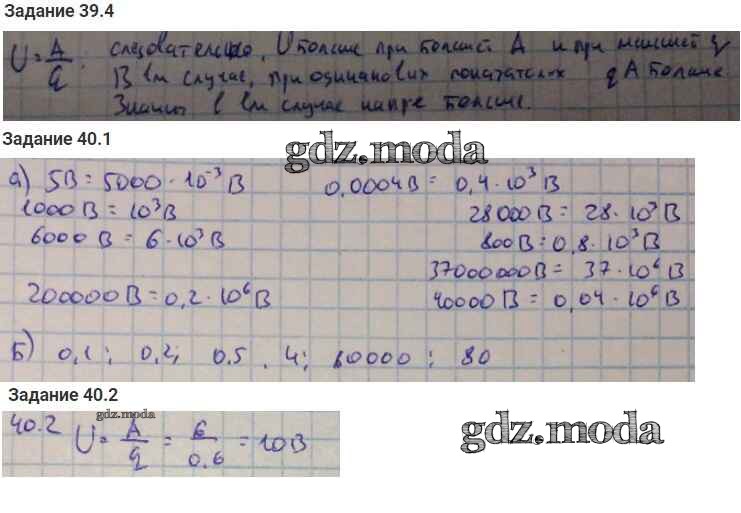 Задание 39.4
U = A/q; следовательно, U больше при большей A и при меньшей q
В 1м случае, при одинаковых показателях q A больше.
Значит в 1м случае напре больше.
Задание 40.1
gdz.moda
а) 5В = 5000 · 10⁻³ В 0,0004В = 0,4 · 10³ В
1000 В = 10³ В 28000В = 28 · 10³ В
6000 В = 6 · 10³ В 800В = 0,8 · 10³ В
37000000В = 37 · 10⁶ В
200000 В = 0,2 · 10⁶ В 40000В = 0,04 · 10⁶ В
Б) 0,1; 0,2; 0,5. 4; 60000; 80
Задание 40.2
gdz.moda
40.2 U = A/q = 6/0.6 = 10В
gdz.moda